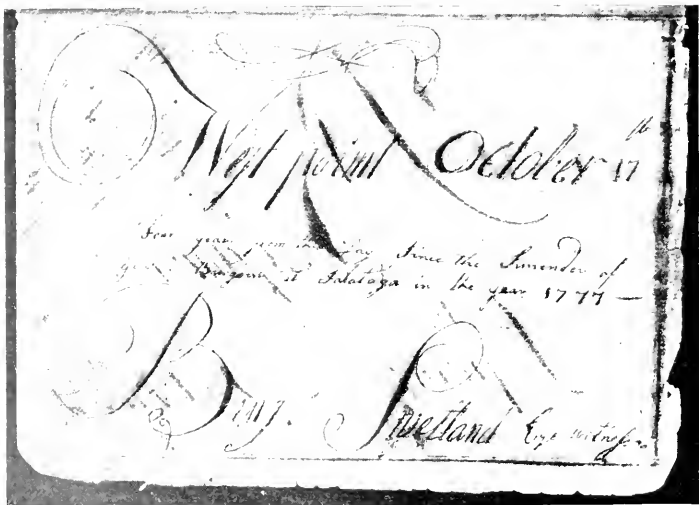 West point October 17th
Four years from this Day Since the Surrender of
Burgoine at Saratoga in the year 1777 —
Benj. Swetland Eye witness